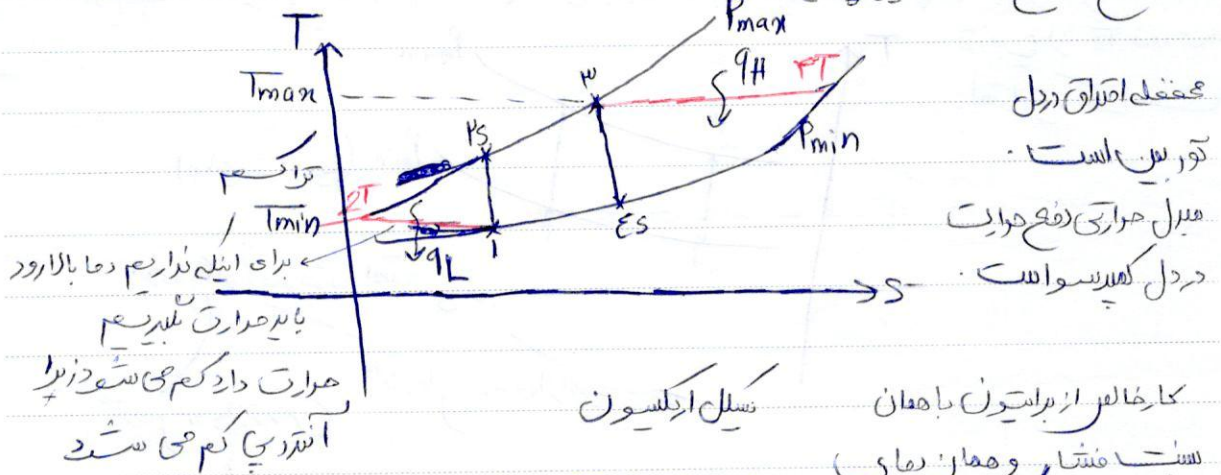 Pmax
T
qH
۳T
Tmax
۳
محفظه احتراق در دل
توربین است.
Pmin
۲s
تراکم
2T
Tmin
۱
۴s
مبدل حرارتی دفع حرارت
در دل کمپرسور است.
qL
برای اینکه نذاریم دما بالا رود
S
باید حرارت بگیریم
حرارت دارد کم می شود زیرا
آنتروپی کم می شود
سیکل اریکسون
کار خالص از برایتون با همان
نسبت فشار و همان دمای